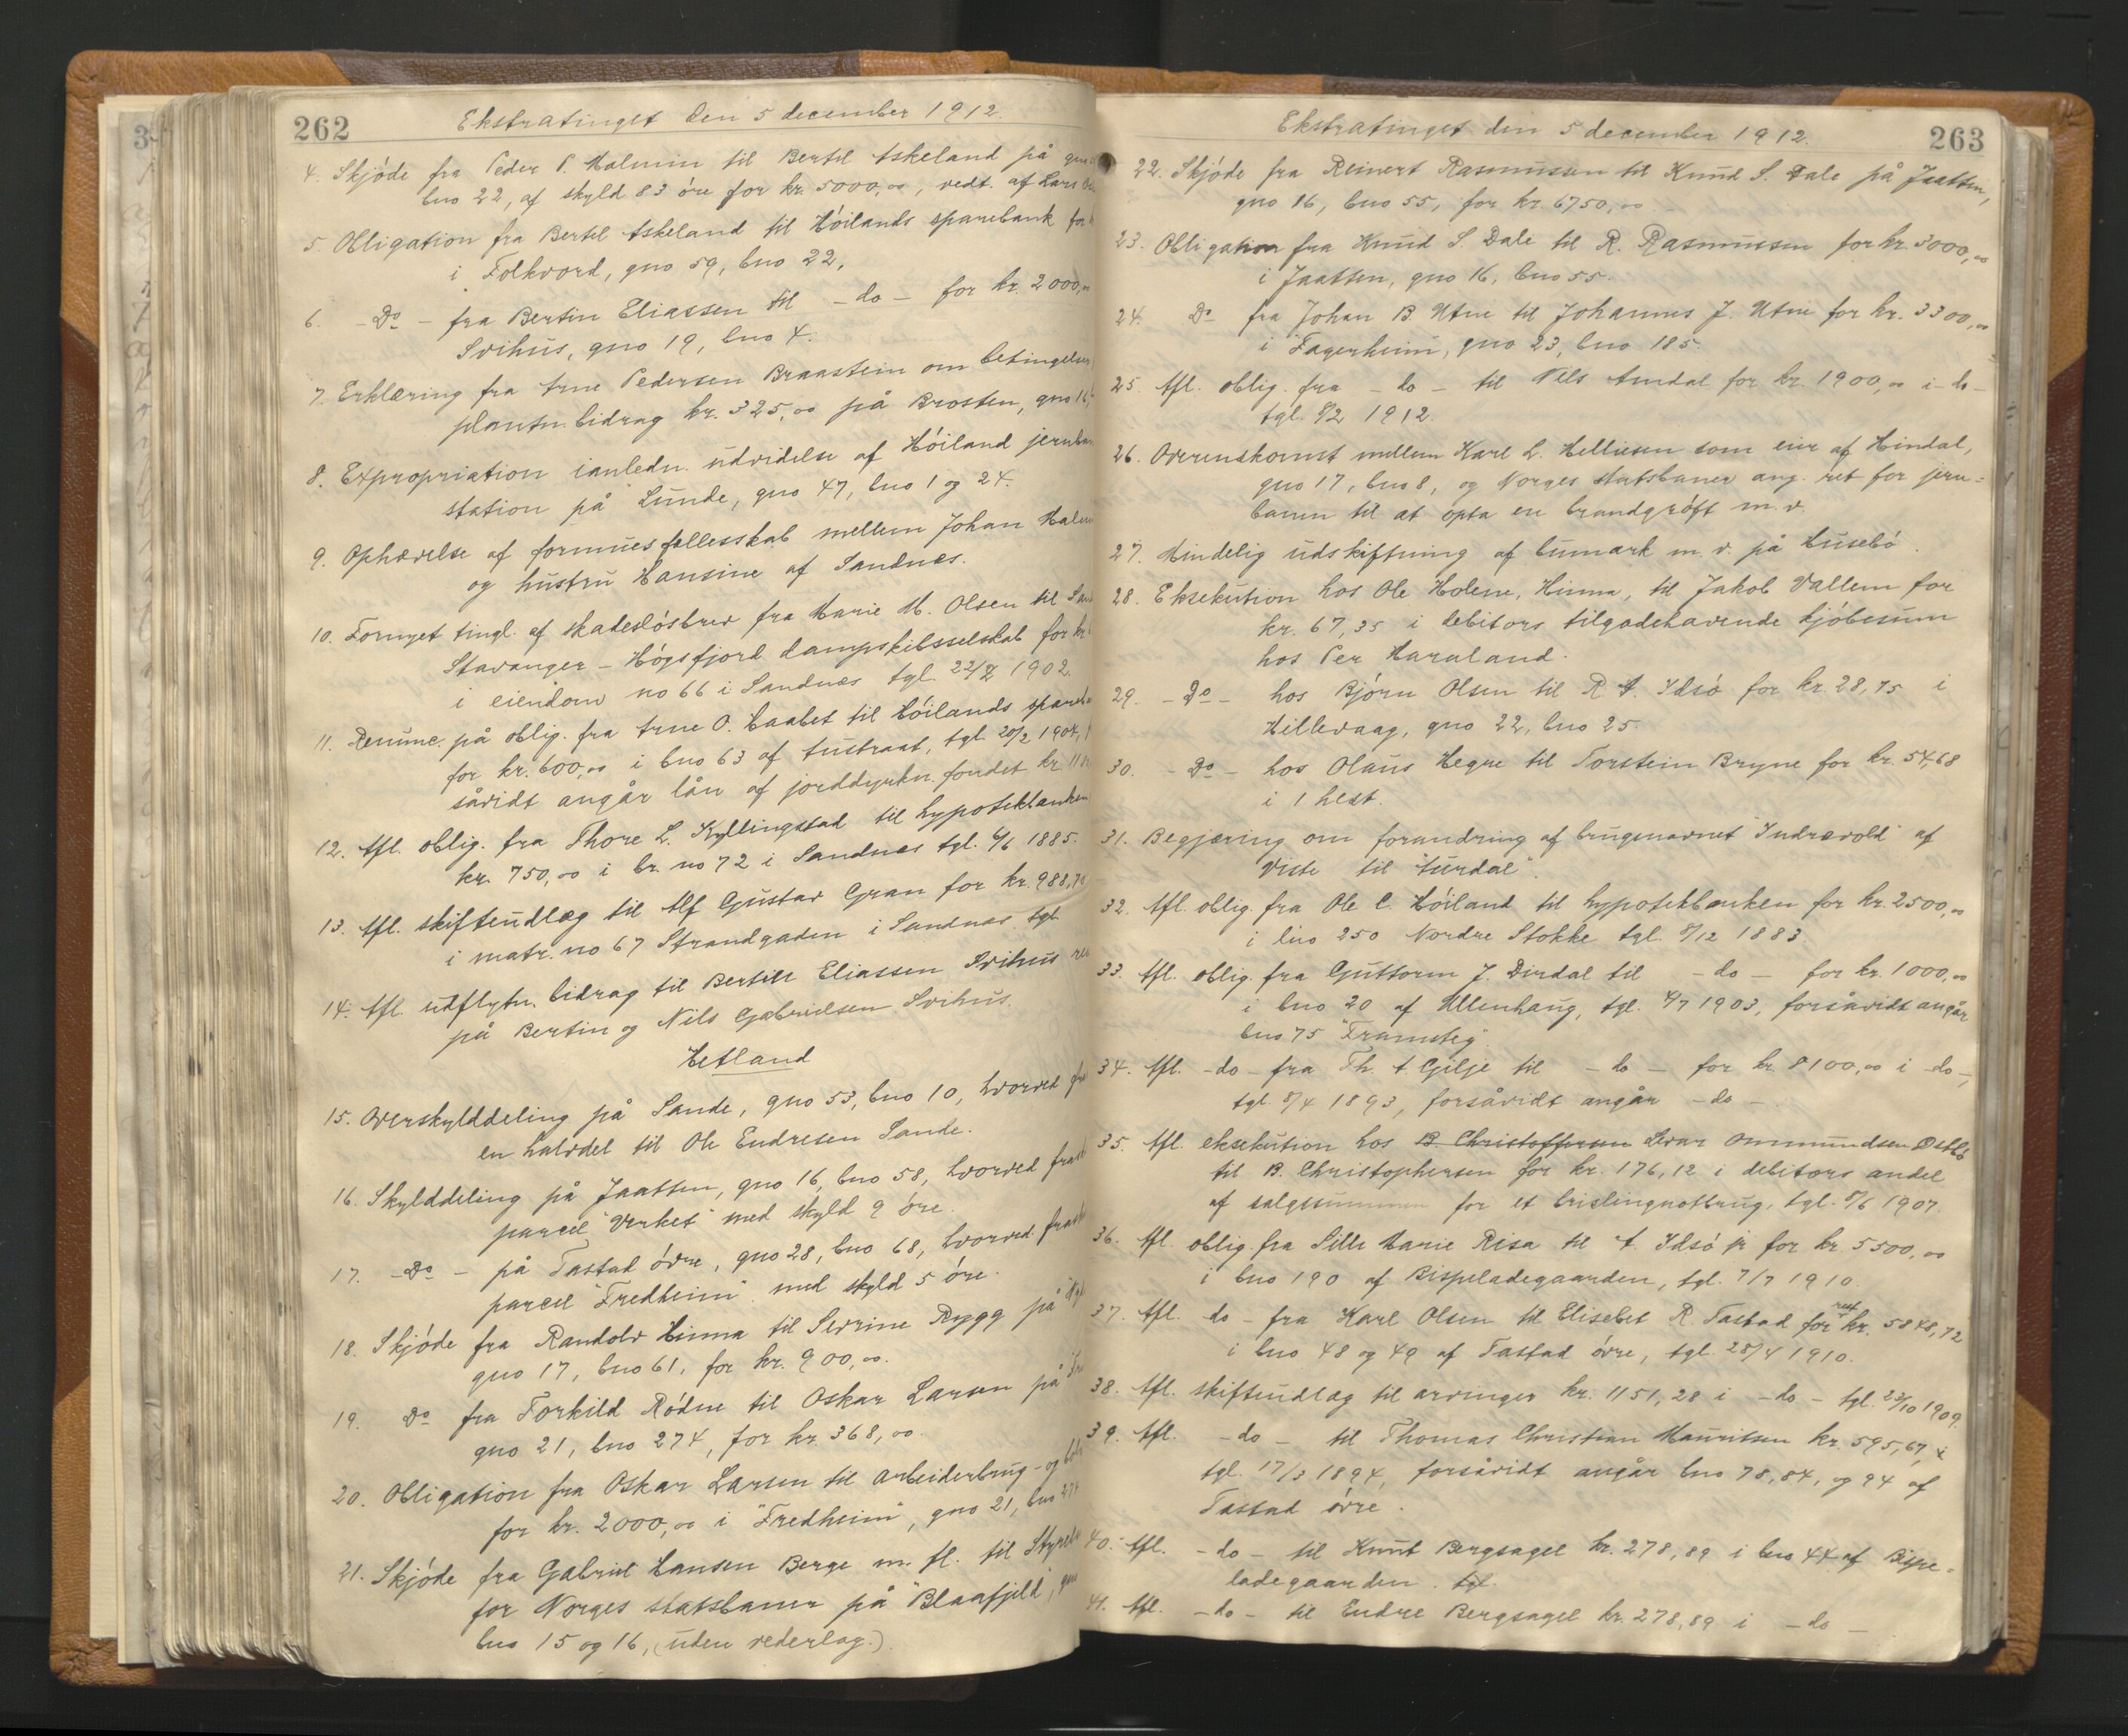 262
Ekstratinget den 5 december 1912.
4. Skjöde fra Peder P. Malmin til Bertel Askeland på gno
bno 22, af skyld 83 öre for kr. 5000,00, vedt. af Lars
5. Obligation fra Bertel Askeland til Höilands sparebank for
i Folkvord, gno 59, bno 22,
6. - Do - fra Bertin Eliassen til - do - for kr. 2000,00
Svihus, gno 19, bno 4.
7. Erklæring fra Arne Pedersen Braastein om betingelser
plantn. bidrag kr. 325,00 på Brosten, gno 16,
8. Expropriation ianledn. udvidelse af Höiland jernban
station på Lunde, gno 47, bno 1 og 24.
9. Ophævelse af formuesfællesskab mellem Johan Malm
og hustru Hansine af Sandnæs.
10. Fornyet tingl. af skadeslösbrev fra Marie M. Olsen til
Stavanger - Högsfjord dampskibsselskab for kr
i eiendom no 66 i Sandnæs tgl. 1902.
11. Renunc. på oblig. fra Arne O. Haabet til Höilands spareba
for kr. 600,00 i bno 63 af Austraat, tgl. 20/2 1904,
såvidt angår lån af jorddyrkn. fondet kr.
12. Afl. oblig. fra Thore L. Kyllingstad til hypotekbanken
kr. 750,00 i br. no 72 i Sandnæs tgl. 4/6 1885.
13. Afl. skifteudlæg til Alf Gustav Gran for kr. 988,70
i matr. no 67 Strandgaden i Sandnæs tgl.
14. Afl. udflytn. bidrag til Bertin Eliassen Svihus
på Bertin og Nils Gabrielsen Svihus.
Hetland
15. Overskylddeling på Sande, gno 53, bno 10, hvorved
en halvdel til Ole Endresen Sande.
16. Skylddeling på Jaatten, gno 16, bno 58, hvorved fras
parcel "Verket" med skyld 9 öre.
17. - Do - på Tastad övre, gno 28, bno 68, hvorved fras
parcel "Fredheim" med skyld 5 öre.
18. Skjöde fra Randolv Hinna til Serine Rygg på
gno 17, bno 61, for kr. 900,00.
19. Do fra Torkild Rödne til Oskar Larsen på
gno 21, bno 274, for kr. 368,00.
20. Obligation fra Oskar Larsen til arbeiderbrug- og
for kr. 2000,00 i "Fredheim", gno 21, bno 274
21. Skjöde fra Gabriel Hansen Berge m. fl. til Styrels
for Norges statsbaner på "Blaafjeld", gno
bno 15 og 16, (uden vederlag.)
263
Ekstratinget den 5 december 1912.
22. Skjöde fra Reinert Rasmussen til Knud S. Dale på Jaatten,
gno 16, bno 55, for kr. 6750,00
23. Obligation fra Knud S. Dale til R. Rasmussen for kr. 3000,00
i Jaatten, gno 16, bno 55.
24. Do fra Johan B. Utne til Johannes J. Utne for kr. 3300,00
i "Fagerheim", gno 23, bno 185
25. Afl. oblig. fra - do - til Nils Amdal for kr. 1900,00 i - do -
tgl. 8/2 1912.
26. Overenskomst mellem Karl L. Helliesen som eier af Hindal,
gno 17, bno 8, og Norges statsbaner ang. ret for jern=
banen til at opta en brandgröft m. v.
27. Mindelig udskiftning af bumark m. v. på Husebö.
28. Eksekution hos Ole Holene, Hinna, til Jakob Vallem for
kr. 67,35 i debitors tilgodehavende kjöbesum
hos Per Haraland.
29. - Do - hos Björn Olsen til R. A. Idsö for kr. 28,75 i
Hillevaag, gno 22, bno 25.
30. - Do - hos Olaus Hegre til Torstein Bryne for kr. 54,68
i 1 hest.
31. Begjæring om forandring af brugsnavnet "Indrevold" af
Viste til "Aurdal".
32. Afl. oblig. fra Ole C. Höiland til hypotekbanken for kr. 2500,00
i bno 250 Nordre Stokke tgl. 8/12 1883
33. Afl. oblig. fra Guttorm J. Dirdal til - do - for kr. 1000,00
i bno 20 af Ullenhaug, tgl. 4/7 1903, forsåvidt angår
bno 75 "Framsteg".
34. Afl. - do - fra Th. A. Gilje til - do - for kr. 8100,00 i - do -,
tgl. 8/4 1893, forsåvidt angår - do -
35. Afl. eksekution hos B. Christoffersen Sivar Ommundsen Östbö
til B. Christophersen for kr. 176,12 i debitors andel
af salgssummen for et brislingnotbrug, tgl. 8/6 1907.
36. Afl. oblig. fra Sille Marie Risa til A. Idsö jr for kr. 5500,00
i bno 190 af Bispeladegaarden, tgl. 7/7 1910.
37. Afl. do - fra Karl Olsen til Elisebet R. Tastad for rest kr. 5848,72
i bno 48 og 49 af Tastad övre, tgl. 28/4 1910.
38. Afl. skifteudlæg til arvinger kr. 1151,28 i - do - tgl. 23/10 1909.
39. Afl. - do - til Thomas Christian Mauritsen kr. 595,67, i
tgl. 17/3 1894, forsåvidt angår bno 78, 84, og 94 af
Tastad övre.
40. Afl. - do - til Knut Bergsagel kr. 278,89 i bno 44 af Bispe=
ladegaarden. tgl.
41. Afl. - do - til Endre Bergsagel kr. 278,89 i - do -